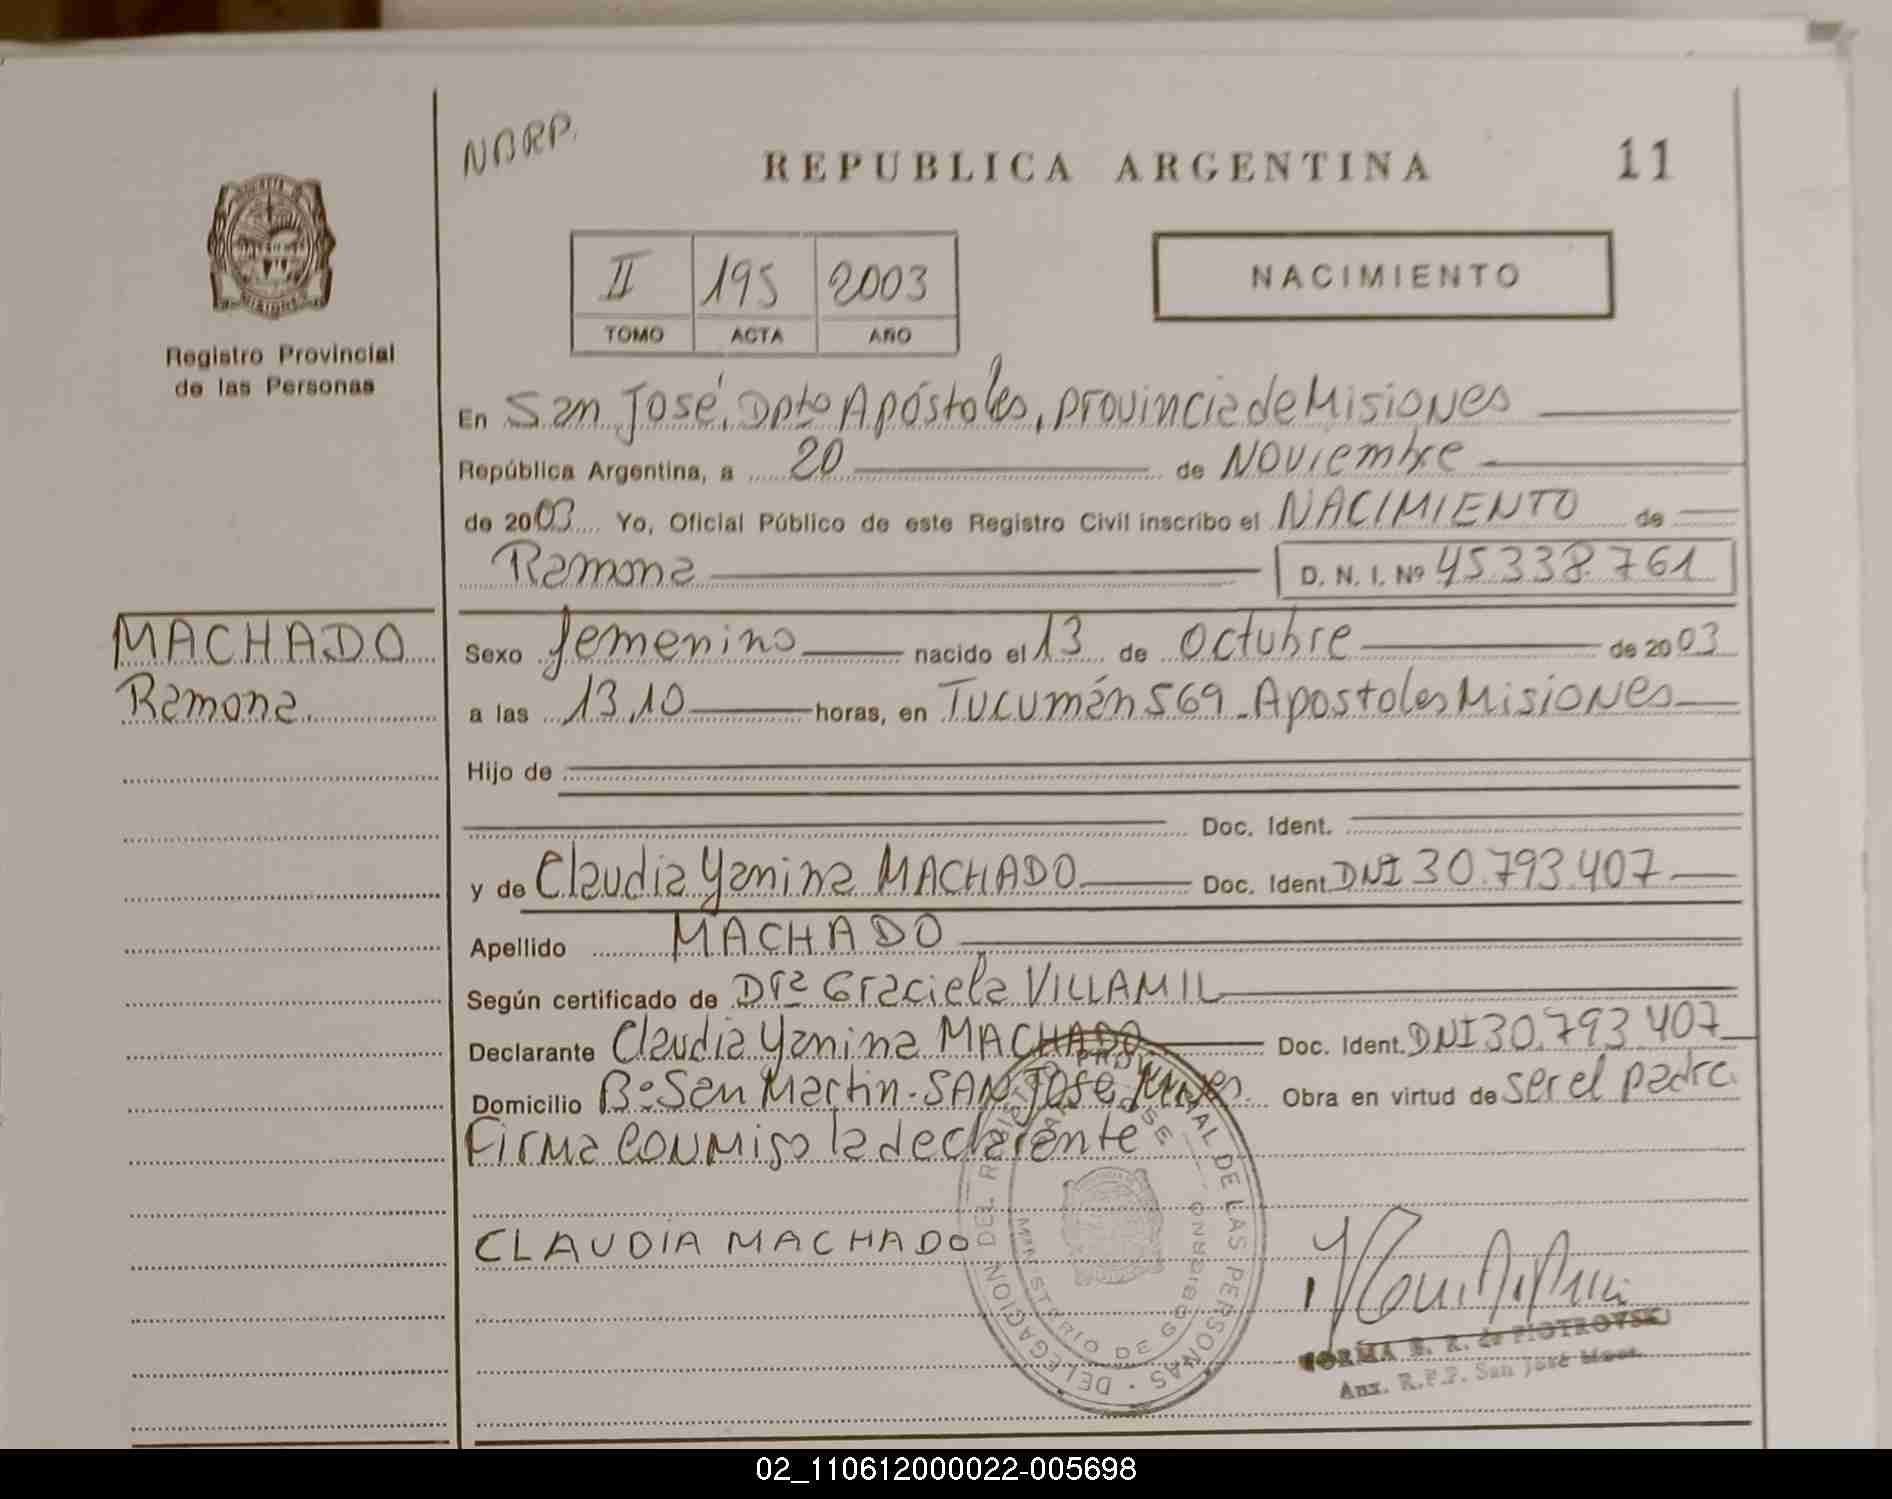 NBRP.
REPUBLICA ARGENTINA
11
II 195 2003
TOMO ACTA AÑO
NACIMIENTO
Registro Provincial
de las Personas
En San José, Dpto Apóstoles, Provincia de Misiones
República Argentina, a 20 de Noviembre
de 2003 Yo, Oficial Público de este Registro Civil inscribo el NACIMIENTO de
Ramona D. N. I. Nº 45.338.761
MACHADO
Ramona
Sexo femenino nacido el 13 de Octubre de 2003
a las 13,10 horas, en Tucumán 569 - Apostoles Misiones
Hijo de
Doc. Ident.
y de Claudia Yanina MACHADO Doc. Ident. DNI 30.793.407
Apellido MACHADO
Según certificado de Dra Graciela VILLAMIL
Declarante Claudia Yanina MACHADO Doc. Ident. DNI 30.793.407
Domicilio Bº San Martin - SAN José Mnes. Obra en virtud de ser el padre
Firma conmigo la declarante
CLAUDIA MACHADO
DELEGACION DEL REGISTRO PROVINCIAL DE LAS PERSONAS
SAN JOSE
MINISTERIO DE GOBIERNO
NORMA B. R. de PIOTROVSKI
Aux. R.P.P. San José Mnes.
02_110612000022-005698